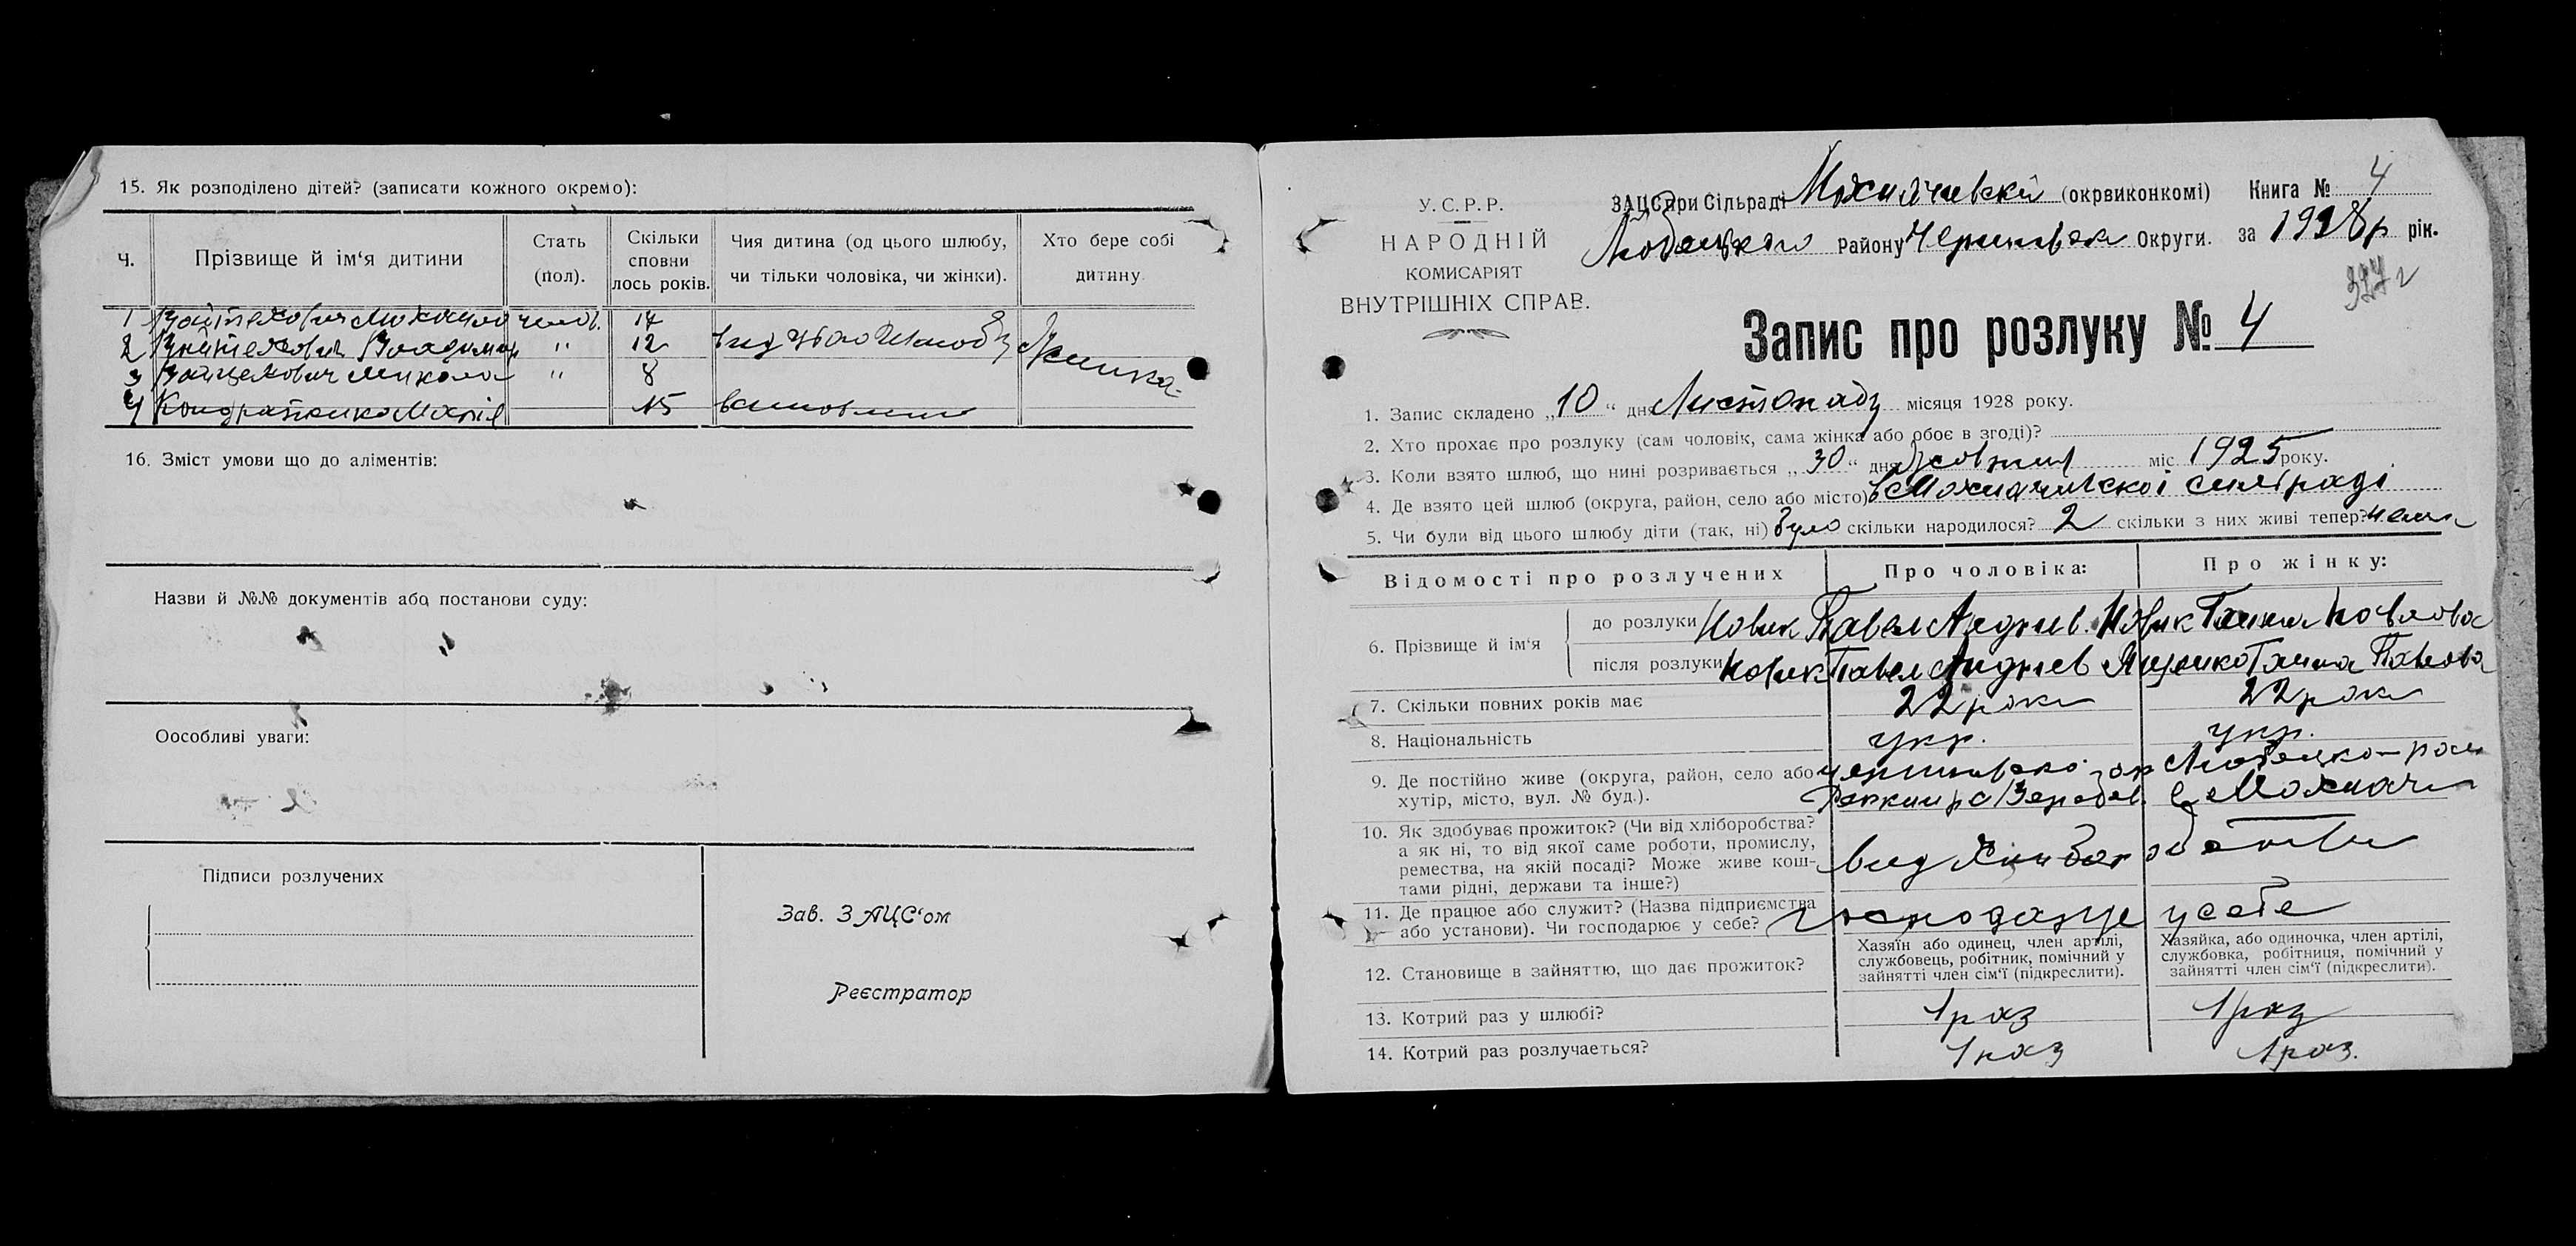 15. Як розподілено дітей? (записати кожного окремо):
Ч.
Прізвище й ім‘я дитини
Стать (пол).
Скільки сповни лось років.
Чия дитина (од цього шлюбу, чи тільки чоловіка, чи жінки).
Хто бере собі дитину
1 14
2 Владимир " 12
3 Микола " 8
4 Кондратенко Марія 15
16. Зміст умови що до аліментів:
Назви й №№ документів або постанови суду:
Оособливі уваги:
Підписи розлучених
Зав. ЗАЦС‘ом
Реєстратор
У.С.Р.Р.
НАРОДНІЙ
КОМИСАРІЯТ
ВНУТРІШНІХ СПРАВ.
ЗАЦС при Сільраді (окрвиконкомі) Книга № 4
Любецького Району Округи. за 1928р рік.
Запис про розлуку № 4
1. Запис складено „10“ дня Листопаду місяця 1928 року.
2. Хто прохає про розлуку (сам чоловік, сама жінка або обоє в згоді)?
3. Коли взято шлюб, що нині розривається „30“ дня міс 1925 року.
4. Де взято цей шлюб (округа, район, село або місто)
5. Чи були від цього шлюбу діти (так, ні) було скільки народилося? 2 скільки з них живі тепер?
Відомості про розлучених
Про чоловіка:
Про жінку:
6. Прізвище й ім‘я
до розлуки Новик Павел Андреев. Новик Ганна Павлова
після розлуки Новик Павел Андреев Ганна Павлова
7. Скільки повних років має 22 роки 22 роки
8. Національність укр. укр.
9. Де постійно живе (округа, район, село або
хутір, місто, вул. № буд.).
10. Як здобуває прожиток? (Чи від хліборобства?
а як ні, то від якої саме роботи, промислу,
ремества, на якій посаді? Може живе кош-
тами рідні, держави та інше?)
11. Де працює або служит? (Назва підприємства
або установи). Чи господарює у себе? у себе
12. Становище в зайняттю, що дає прожиток?
Хазяїн або одинец, член артілі,
службовець, робітник, помічний у
зайнятті член сім‘ї (підкреслити).
Хазяйка, або одиночка, член артілі,
службовка, робітниця, помічний у
зайнятті член сім‘ї (підкреслити).
13. Котрий раз у шлюбі? 1 раз 1 раз
14. Котрий раз розлучаеться? 1 раз 1 раз.